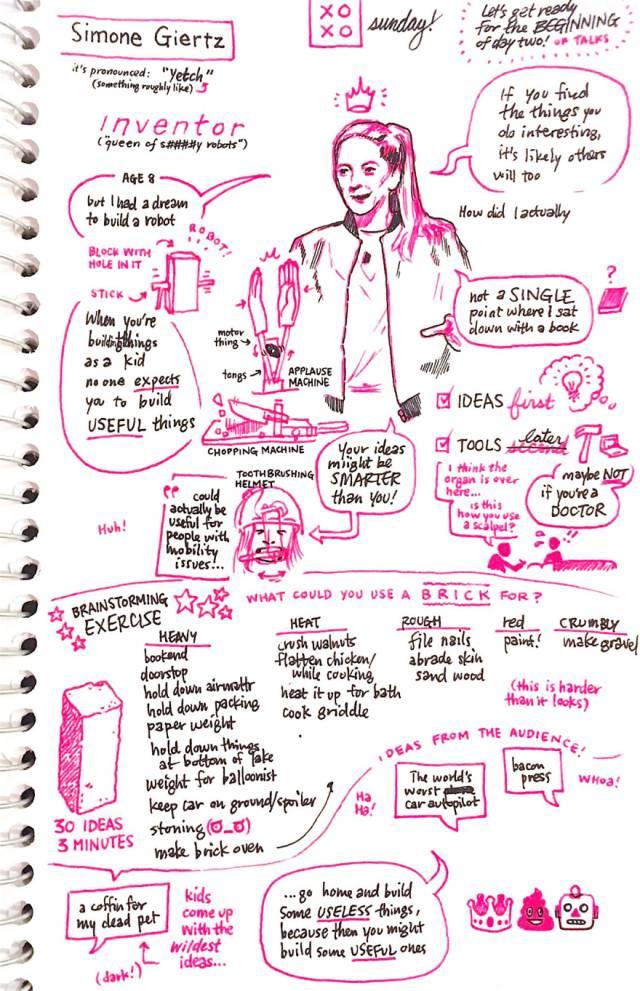 Simone Giertz
it's pronounced: "Yetch"
(something roughly like)
XO
XO
sunday!
Let's get ready
for the BEGINNING
of day two! OF TALKS
inventor
("queen of s####y robots")
If you find
the things you
do interesting,
it's likely others
will too
AGE 8
but I had a dream
to build a robot
How did I actually
ROBOT!
BLOCK WITH
HOLE IN IT
STICK
not a SINGLE
point where I sat
down with a book
?
When you're
building things
as a kid
no one expects
you to build
USEFUL things
motor
thing
tongs
APPLAUSE
MACHINE
CHOPPING MACHINE
IDEAS first
TOOLS second later
Your ideas
might be
SMARTER
than you!
I think the
organ is over
here...
is this
how you use
a scalpel?
maybe NOT
if you're a
DOCTOR
TOOTHBRUSHING
HELMET
Huh!
"could
actually be
useful for
people with
mobility
issues...
BRAINSTORMING
EXERCISE
WHAT COULD YOU USE A BRICK FOR?
HEAVY
bookend
doorstop
hold down airmattr
hold down packing
paper weight
hold down things
at bottom of lake
weight for balloonist
keep car on ground/spoiler
stoning (ಠ_ಠ)
make brick oven
HEAT
crush walnuts
flatten chicken/
while cooking
heat it up for bath
cook griddle
ROUGH
file nails
abrade skin
sand wood
red
paint!
CRUMBLY
make gravel
(this is harder
than it looks)
30 IDEAS
3 MINUTES
IDEAS FROM THE AUDIENCE!
Ha
Ha!
The world's
worst
car autopilot
bacon
press
Whoa!
a coffin for
my dead pet
(dark!)
kids
come up
with the
wildest
ideas...
...go home and build
some USELESS things,
because then you might
build some USEFUL ones